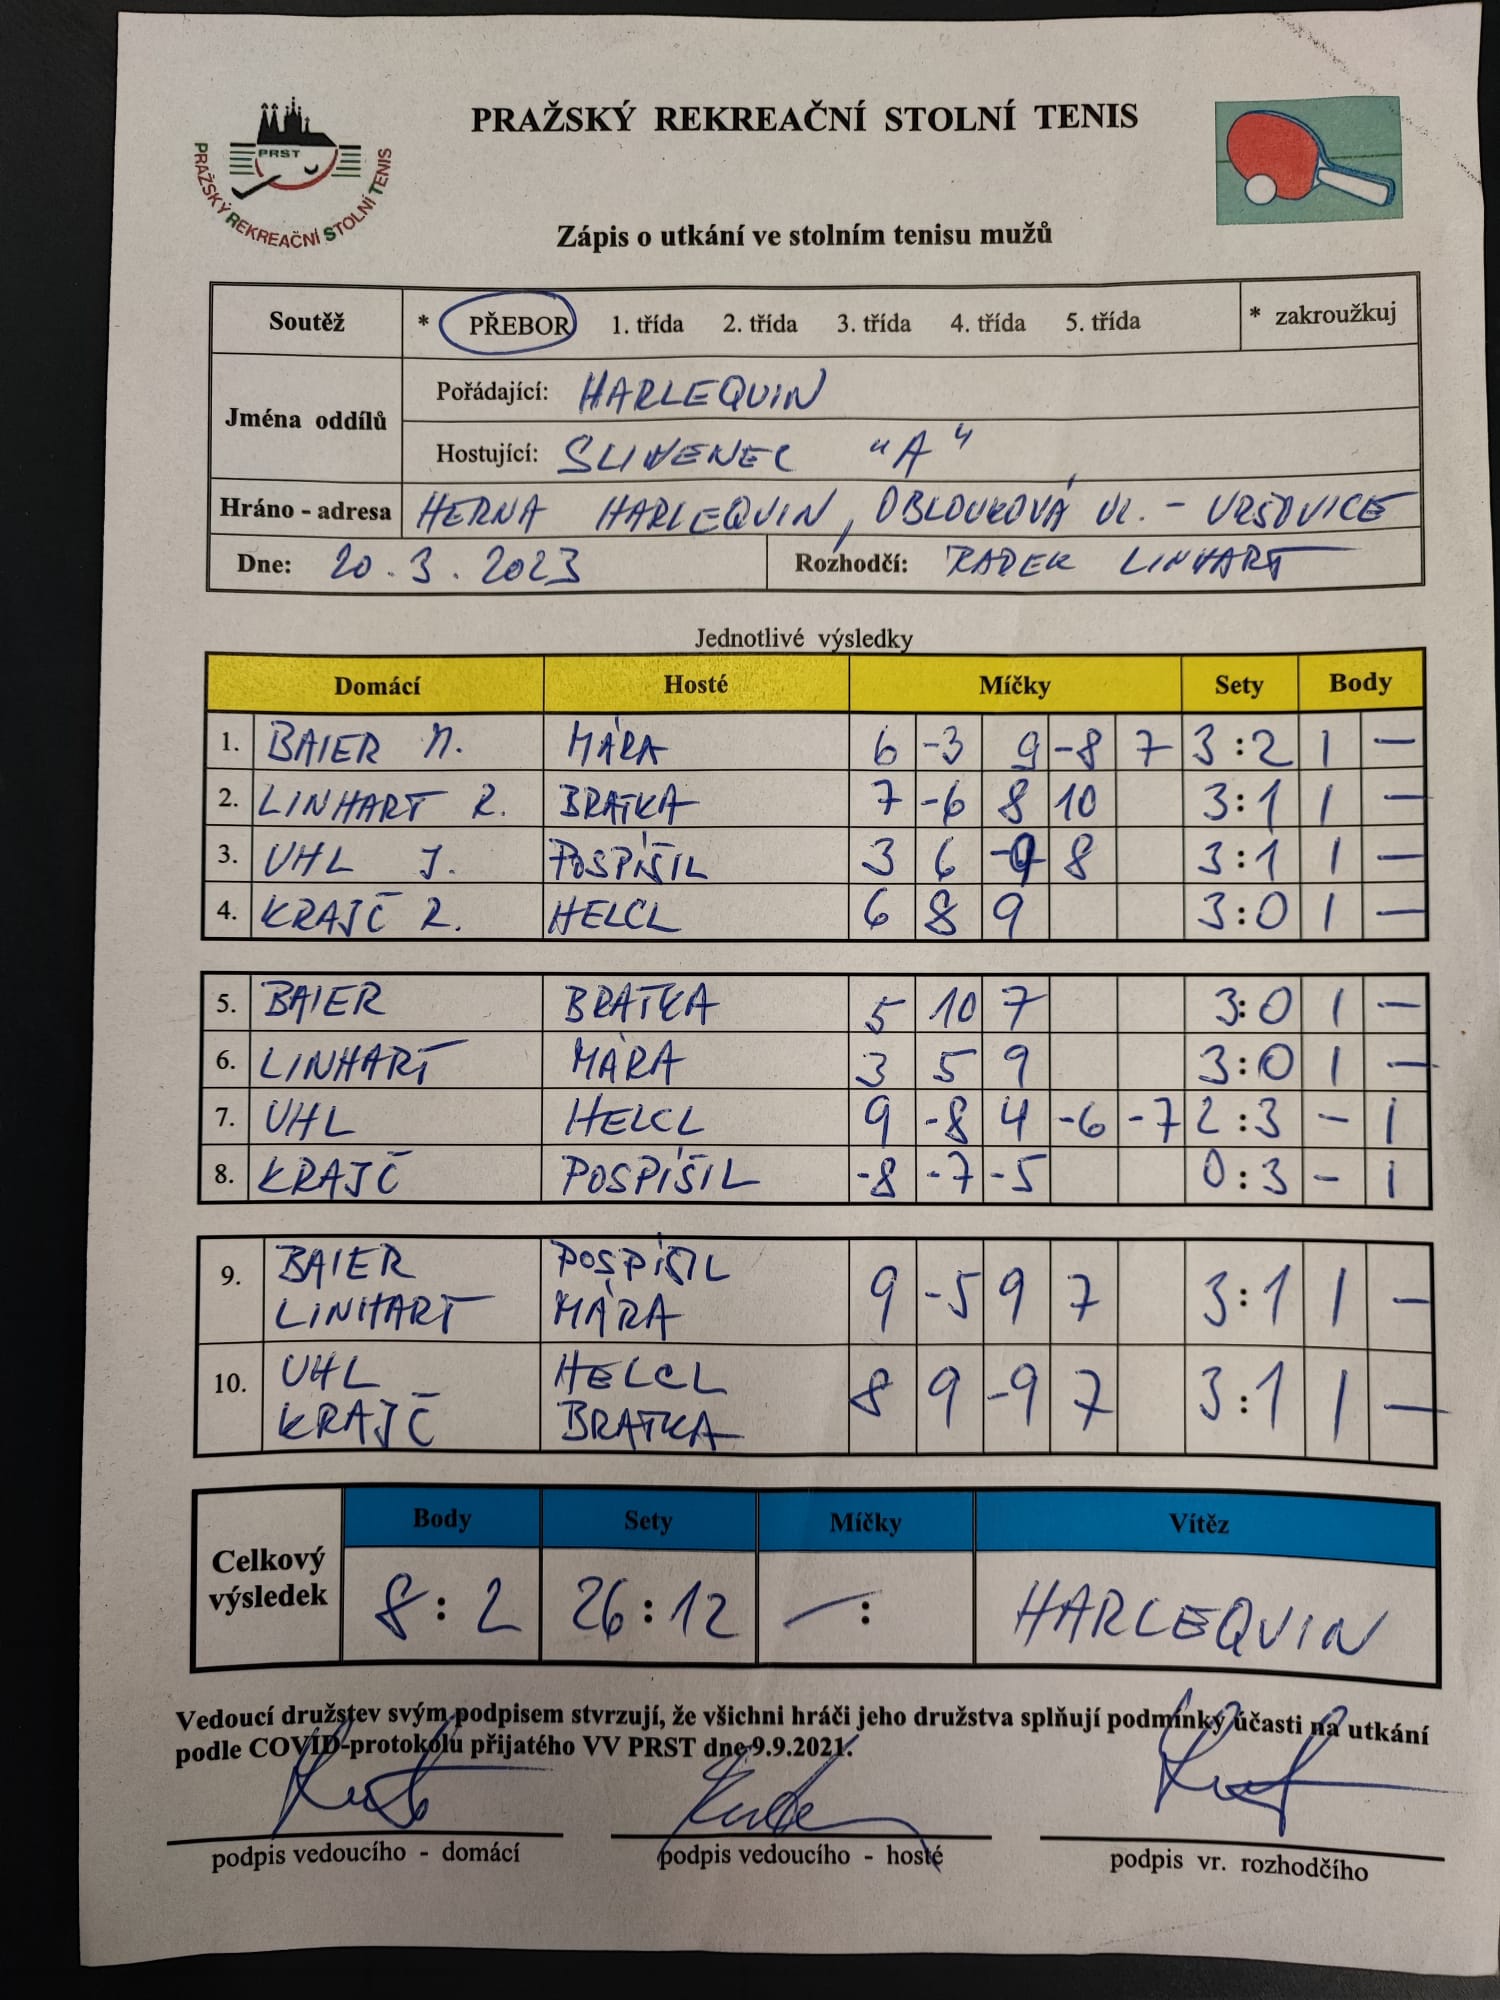 PRAŽSKÝ REKREAČNÍ STOLNÍ TENIS
PRST
PRAŽSKÝ REKREAČNÍ STOLNÍ TENIS
Zápis o utkání ve stolním tenisu mužů
Soutěž * PŘEBOR 1. třída 2. třída 3. třída 4. třída 5. třída * zakroužkuj
Jména oddílů
Pořádající: HARLEQUIN
Hostující: SLIVENEC "A"
Hráno - adresa HERNA HARLEQUIN, OBLOUKOVÁ UL. - VRŠOVICE
Dne: 20.3.2023 Rozhodčí: RADEK LINHART
Jednotlivé výsledky
Domácí Hosté Míčky Sety Body
1. BAIER M. MÁRA 6 -3 9 -8 7 3:2 1 -
2. LINHART R. BRATKA 7 -6 8 10 3:1 1 -
3. UHL J. POSPÍŠIL 3 6 -9 8 3:1 1 -
4. KRAJČ R. HELCL 6 8 9 3:0 1 -
5. BAIER BRATKA 5 10 7 3:0 1 -
6. LINHART MÁRA 3 5 9 3:0 1 -
7. UHL HELCL 9 -8 4 -6 -7 2:3 - 1
8. KRAJČ POSPÍŠIL -8 -7 -5 0:3 - 1
BAIER POSPÍŠIL
9. 9 -5 9 7 3:1 1 -
LINHART MÁRA
UHL HELCL
10. 8 9 -9 7 3:1 1 -
KRAJČ BRATKA
Body Sety Míčky Vítěz
Celkový výsledek 8:2 26:12 - : HARLEQUIN
Vedoucí družstev svým podpisem stvrzují, že všichni hráči jeho družstva splňují podmínky účasti na utkání
podle COVID-protokolu přijatého VV PRST dne 9.9.2021.
podpis vedoucího - domácí podpis vedoucího - hosté podpis vr. rozhodčího